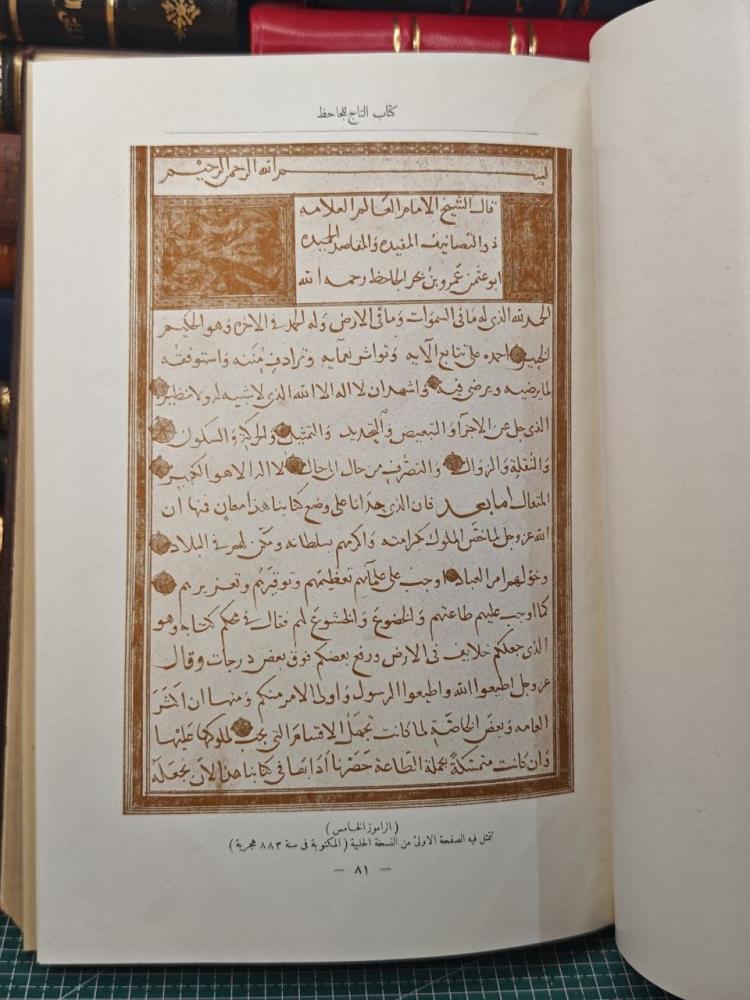 كتاب التاج للجاحظ
بسم الله الرحمن الرحيم
قال الشيخ الامام العالم العلامه
ذو التصانيف المفيده والمقاصد الحميده
ابو عثمن عمرو بن بحر الجاحظ رحمه الله
الحمد لله الذي له ما في السموات وما في الارض وله الحمد في الاخرة وهو الحكيم
الخبير احمده على تتابع الآيه وتواتر نعمايه وترادف مننه واستوفقه
لما يرضيه ويرضى فيه واشهد ان لا اله الا الله الذي لا شبيه له ولا نظير
الذي جل عن الاجزآ والتبعيض والتحديد والتمثيل والحركة والسكون
والنقلة والزوال والتصرف من حال الى حال لا اله الا هو الكبير
المتعال اما بعد فان الذي حدانا على وضع كتابنا هذا معان فنها ان
الله عز وجل لما خص الملوك بكرامته واكرمهم بسلطانه ومكن لهم في البلاد
وخولهم امر العباد اوجب على علمآئهم تعظيمهم وتوقيرهم وتعزيرهم
كما اوجب عليهم طاعتهم والخضوع والخشوع لهم فقال في محكم كتابه وهو
الذي جعلكم خلايف في الارض ورفع بعضكم فوق بعض درجات وقال
عز وجل اطيعوا الله واطيعوا الرسول واولي الامر منكم ومنها ان اكثر
العامه وبعض الخاصة لما كانت تجهل الاقسام التي يجب لملوكها عليها
وان كانت متمسكة بجملة الطاعة حصرنا آدابها في كتابنا هذا لان نجعله
(الراموز الخامس)
تتمثل فيه الصفحة الاولى من النسخة الحلبية (المكتوبة في سنة ٨٨٣ هجرية)
— ٨١ —